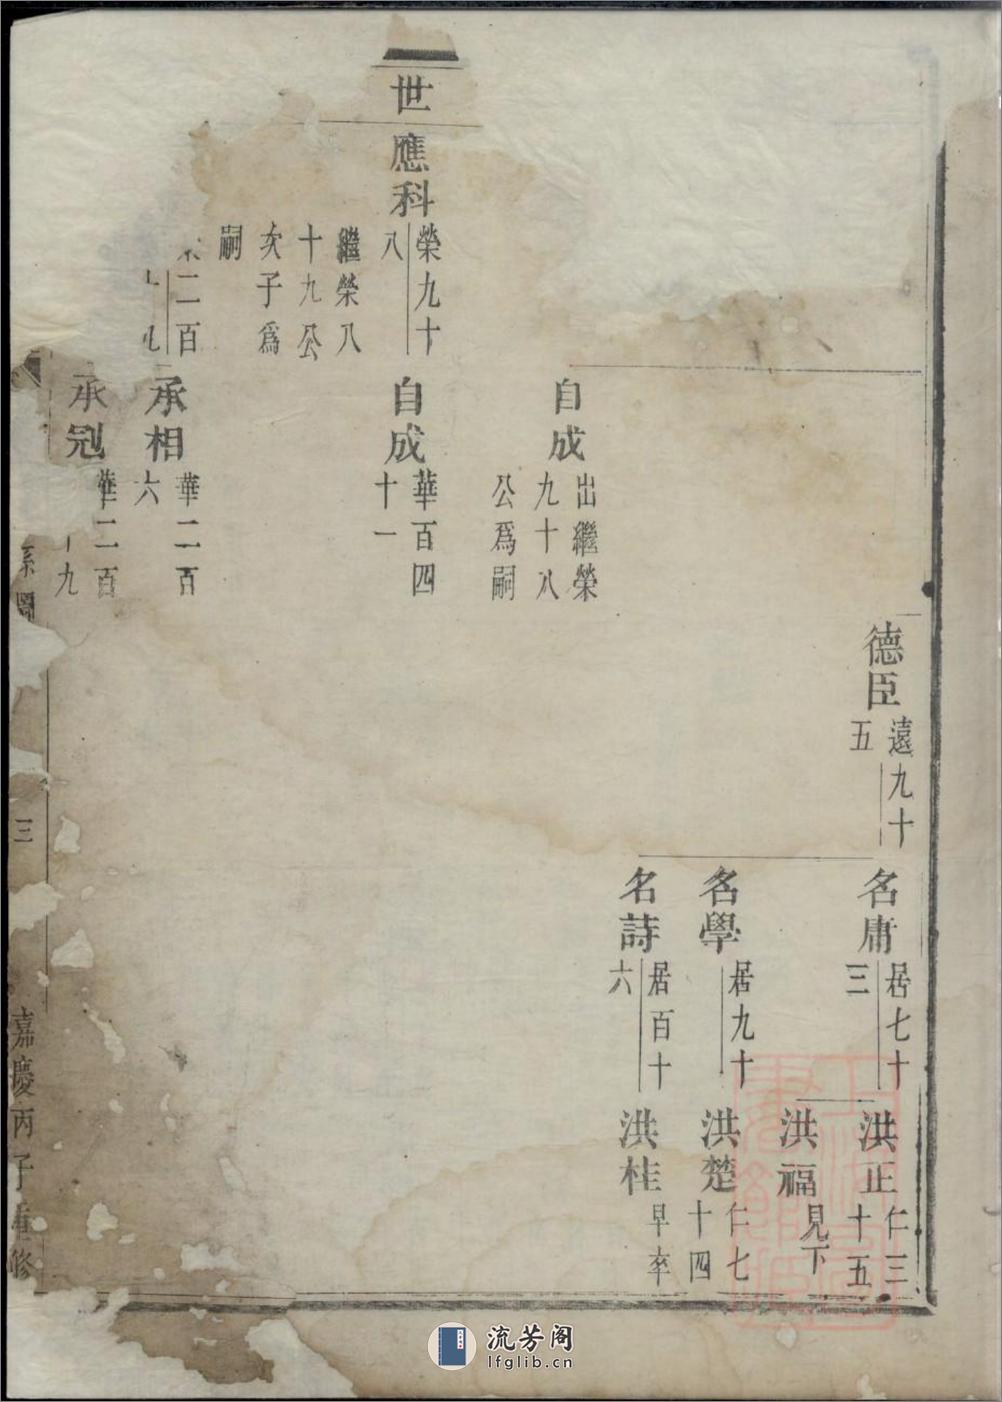 德臣
遠九十
五
名庸
居七十
三
洪正
仁三
十五
洪福
見下
名學
居九十
洪楚
仁七
十四
名詩
居百十
六
洪桂
早卒
自成
出繼榮
九十八
公爲嗣
世
應科
榮九十
八
繼榮八
十九公
次子爲
嗣
自成
華百四
十一
二百
承相
華二百
六
承冠
華二百
十九
系圖
三
嘉慶丙子重修
流芳阁
lfglib.cn